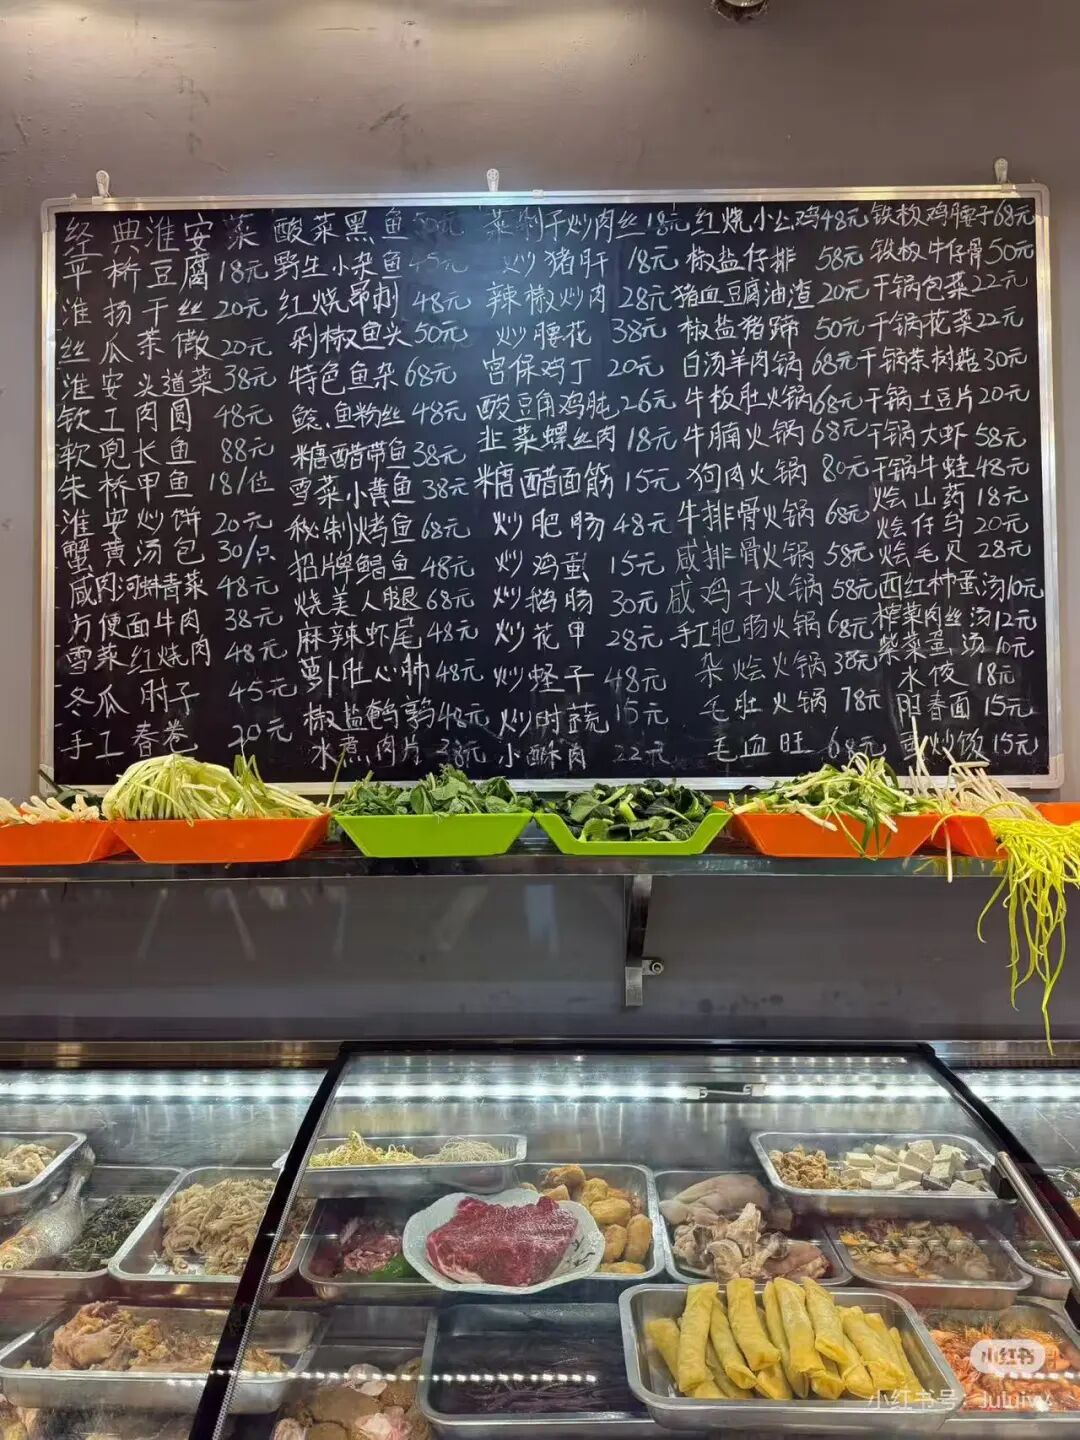 经典淮安菜
平桥豆腐 18元
淮扬干丝 20元
丝瓜茶馓 20元
淮安头道菜 38元
钦工肉圆 48元
软兜长鱼 88元
朱桥甲鱼 18/位
淮安炒饼 20元
蟹黄汤包 30/只
咸肉河蚌青菜 48元
方便面牛肉 38元
雪菜红烧肉 48元
冬瓜肘子 45元
手工春卷 20元
酸菜黑鱼 50元
野生小杂鱼 45元
红烧昂刺 48元
剁椒鱼头 50元
特色鱼杂 68元
鲶鱼粉丝 48元
糖醋带鱼 38元
雪菜小黄鱼 38元
秘制烤鱼 68元
招牌鲳鱼 48元
烧美人腿 68元
麻辣虾尾 48元
萝卜肚心肺 48元
椒盐鹌鹑 48元
水煮肉片 38元
菜剩子炒肉丝 18元
炒猪肝 18元
辣椒炒肉 28元
炒腰花 38元
宫保鸡丁 20元
酸豆角鸡肫 26元
韭菜螺丝肉 18元
糖醋面筋 15元
炒肥肠 48元
炒鸡蛋 15元
炒鹅肠 30元
炒花甲 28元
炒蛏子 48元
炒时蔬 15元
小酥肉 22元
红烧小公鸡 48元
椒盐仔排 58元
猪血豆腐油渣 20元
椒盐猪蹄 50元
白汤羊肉锅 68元
牛板肚火锅 68元
牛腩火锅 68元
狗肉火锅 80元
牛排骨火锅 68元
咸排骨火锅 58元
咸鸡子火锅 58元
手工肥肠火锅 68元
杂烩火锅 38元
毛肚火锅 78元
毛血旺 68元
铁板鸡腰子 68元
铁板牛仔骨 50元
干锅包菜 22元
干锅花菜 22元
干锅茶树菇 30元
干锅土豆片 20元
干锅大虾 58元
干锅牛蛙 48元
烩山药 18元
烩仔乌 20元
烩毛贝 28元
西红柿蛋汤 10元
榨菜肉丝汤 12元
紫菜蛋汤 10元
水饺 18元
阳春面 15元
蛋炒饭 15元
小红书
小红书号：Juluivv